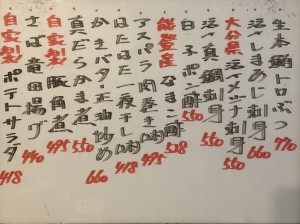 生本鮪トロぶつ 770
活〆しまあじ刺身 660
大分県 活〆イサキ刺身 550
活〆真鯛刺身 550
白子ポン酢 550
能登産 なまこ酢 528
アスパラ肉巻き(2本) 495
はたはた一夜干し(2本) 418
かきバター正油炒め 660
真だらから煮 550
自家製 豚角煮 495
さば竜田揚げ 440
自家製 ポテトサラダ 418